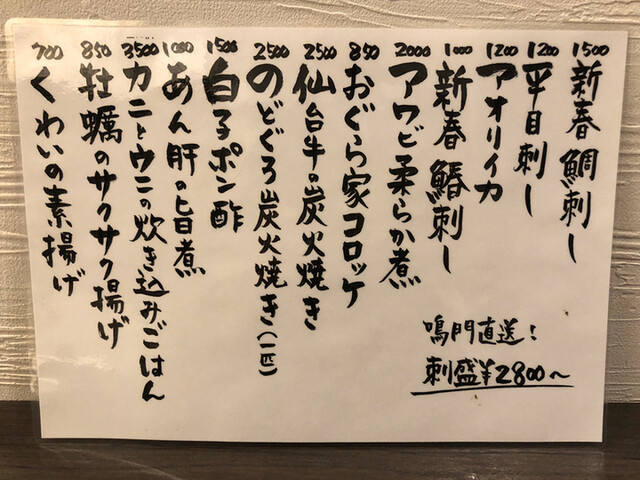 1500 新春鯛刺し
1200 平目刺し
1200 アオリイカ
1000 新春鰆刺し
2000 アワビ柔らか煮
850 おぐら家コロッケ
2500 仙台牛の炭火焼き
2500 のどぐろ炭火焼き(一匹)
1500 白子ポン酢
1000 あん肝の旨煮
3500 カニとウニの炊き込みごはん
850 牡蠣のサクサク揚げ
700 くわいの素揚げ
鳴門直送!
刺盛¥2800〜